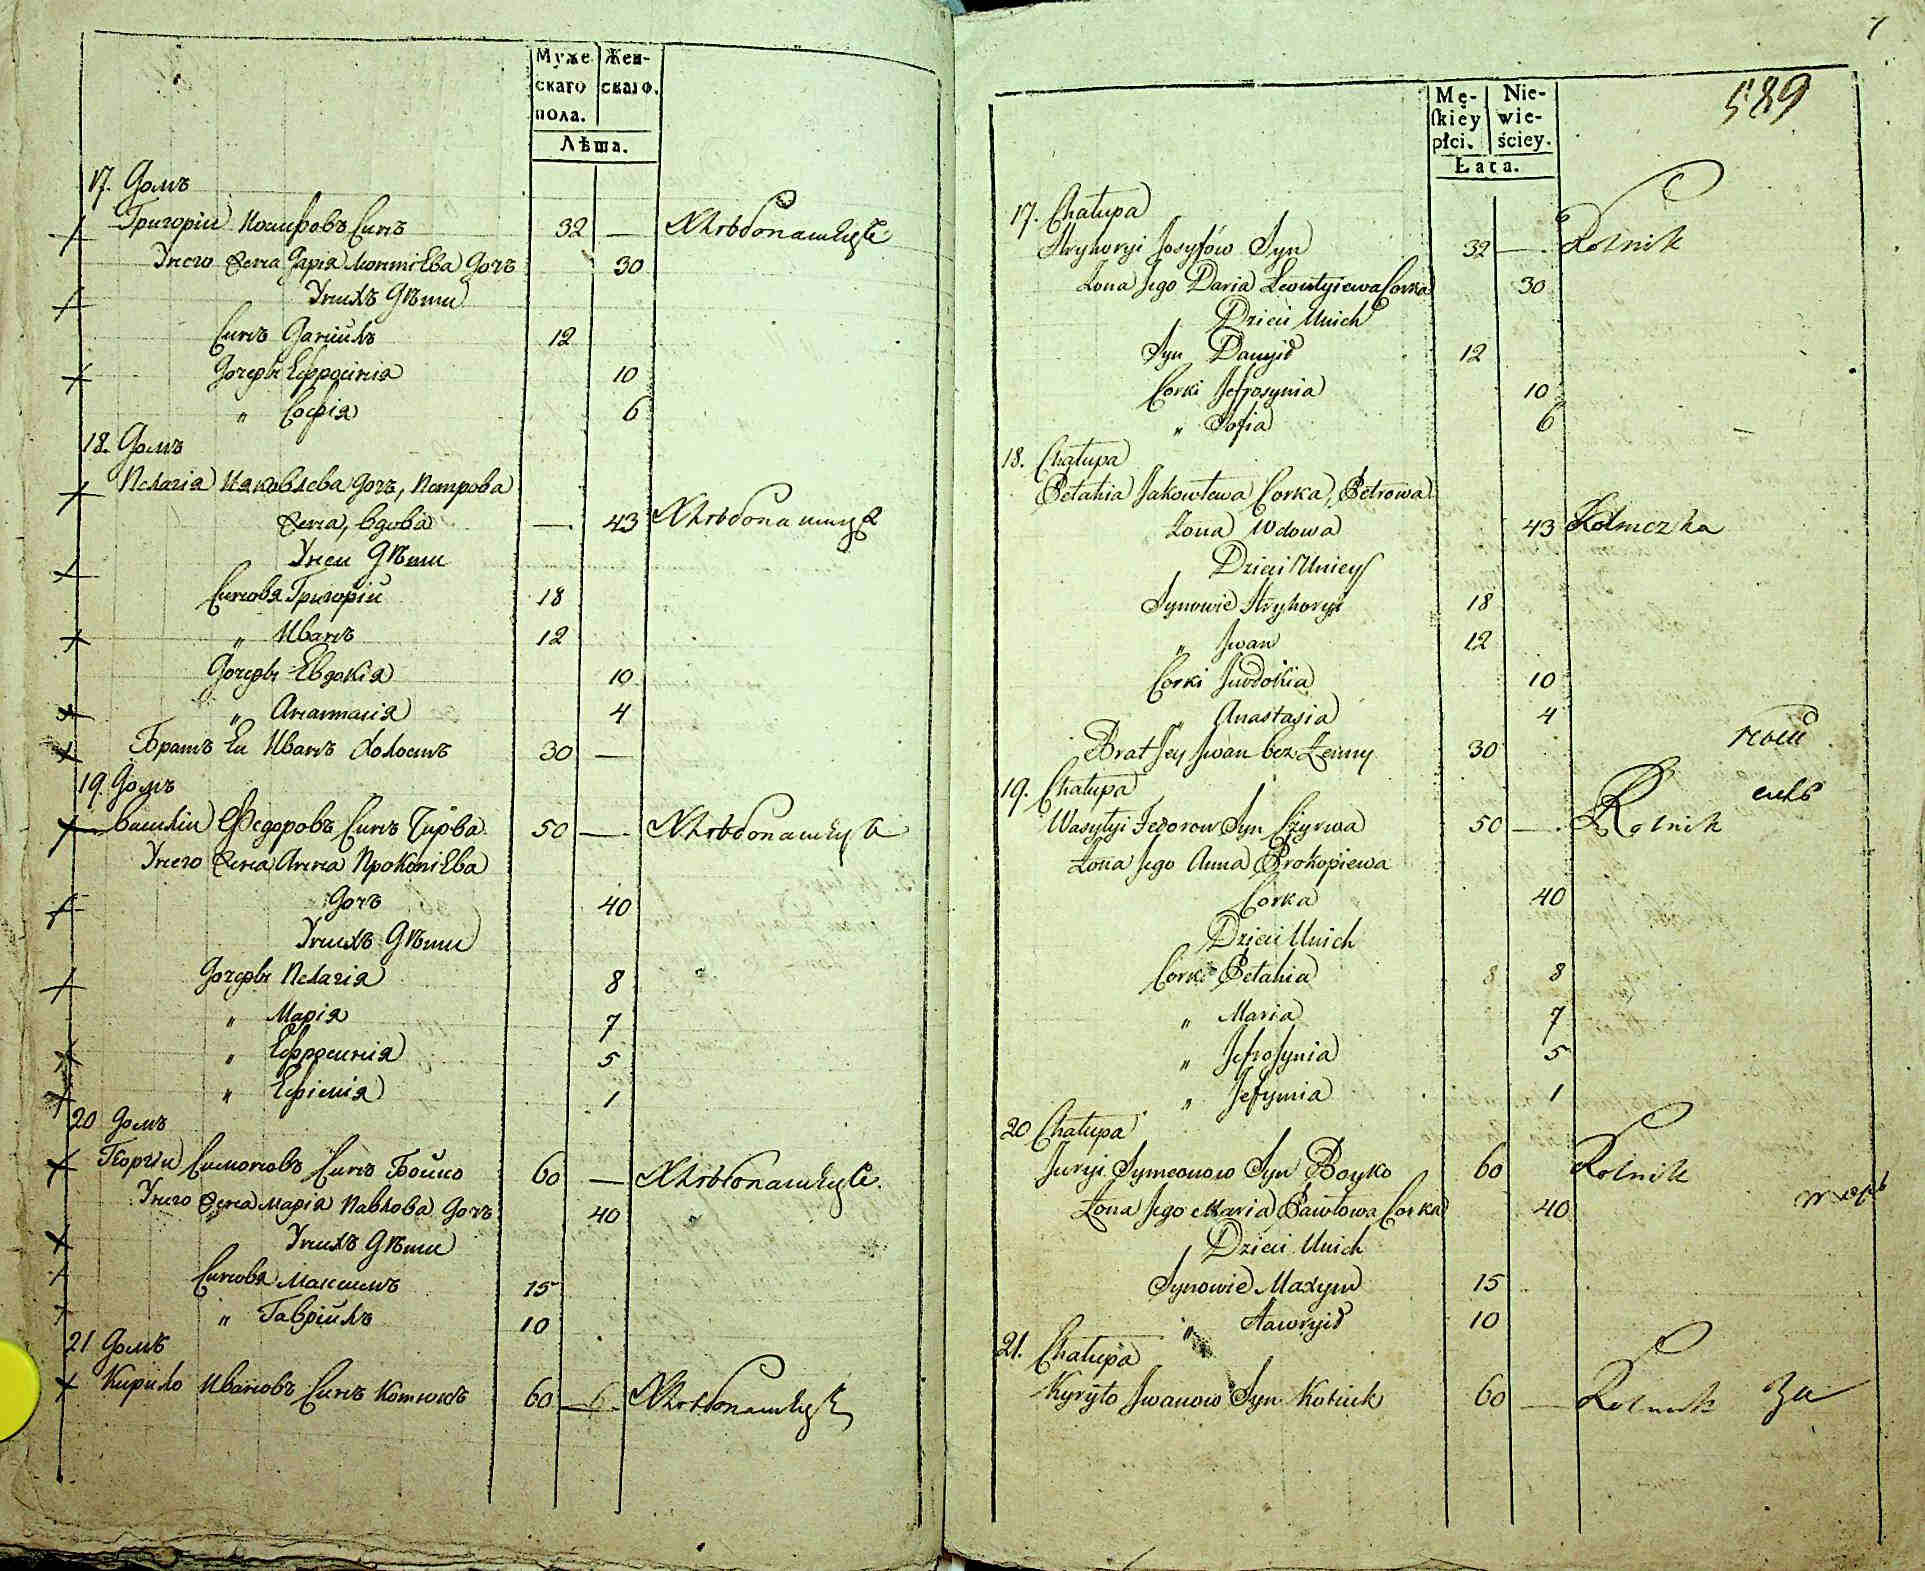 Муже
скаго
пола.
Жен-
скаго.
Лѣта.
17. Домъ
Григорій Иосифовъ Синъ 32 — Хлѣбопашецъ
Унего Жена Дарія Леонтіева Дочъ 30
Унихъ Дѣти
Синъ Даніилъ 12
Дочеры Ефросинія 10
„ Софія 6
18. Домъ
Пелагія Иаковлева Дочъ, Петрова
Жена, вдова — 43 Хлѣбопашица
Унеи Дѣти
Синовя Григорій 18
„ Иванъ 12
Дочеры Евдокія 10
„ Анастасія 4
Братъ Еи Иванъ Холостъ 30 —
19. Домъ
Василій Федоровъ Синъ Чирва 50 — Хлѣбопашецъ
Унего Жена Анна Прокопіева
Дочъ 40
Унихъ Дѣти
Дочеры Пелагія 8
„ Марія 7
„ Ефросинія 5
„ Ефимія 1
20 Домъ
Георгій Симоновъ Синъ Бойко 60 — Хлѣбопашецъ.
Унего Жена Марія Павлова Дочъ 40
Унихъ Дѣти
Синовя Максимъ 15
„ Гавріилъ 10
21 Домъ
Кирило Ивановъ Синъ Котюкъ 60 — Хлѣбопашецъ
589
Mę-
skiey
płci.
Nie-
wie-
ściey.
Łata.
17. Chałupa
Hryhoryi Josyfów Syn 32 — Rolnik
Żona Jego Daria Lewutyiewa Corka 30
Dzieci Unich
Syn Danyił 12
Corki Jefrosynia 10
„ Sofia 6
18. Chałupa
Pełahia Jakowlewa Corka, Petrowa
Żona Wdowa 43 Rolniczka
Dzieci Unieys
Synowie Hryhoryi 18
„ Jwan 12
Corki Juwdokia 10
„ Anastasia 4
Brat Jey Jwan bez Żenny 30
19. Chałupa
Wasylyi Fedorow Syn Czyrwa 50 — Rolnik
Żona Jego Anna Prokopiewa
Corka 40
Dzieci Unich
Corki Pełahia 8 8
„ Maria 7
„ Jefrosynia 5
„ Jefymia 1
20 Chałupa
Juryi Symeonow Syn Boyko 60 Rolnik
Żona Jego Maria Pawłowa Corka 40
Dzieci Unich
Synowie Maxym 15
„ Hawryił 10
21. Chałupa
Kyryło Jwanow Syn Kotiuk 60 — Rolnik за